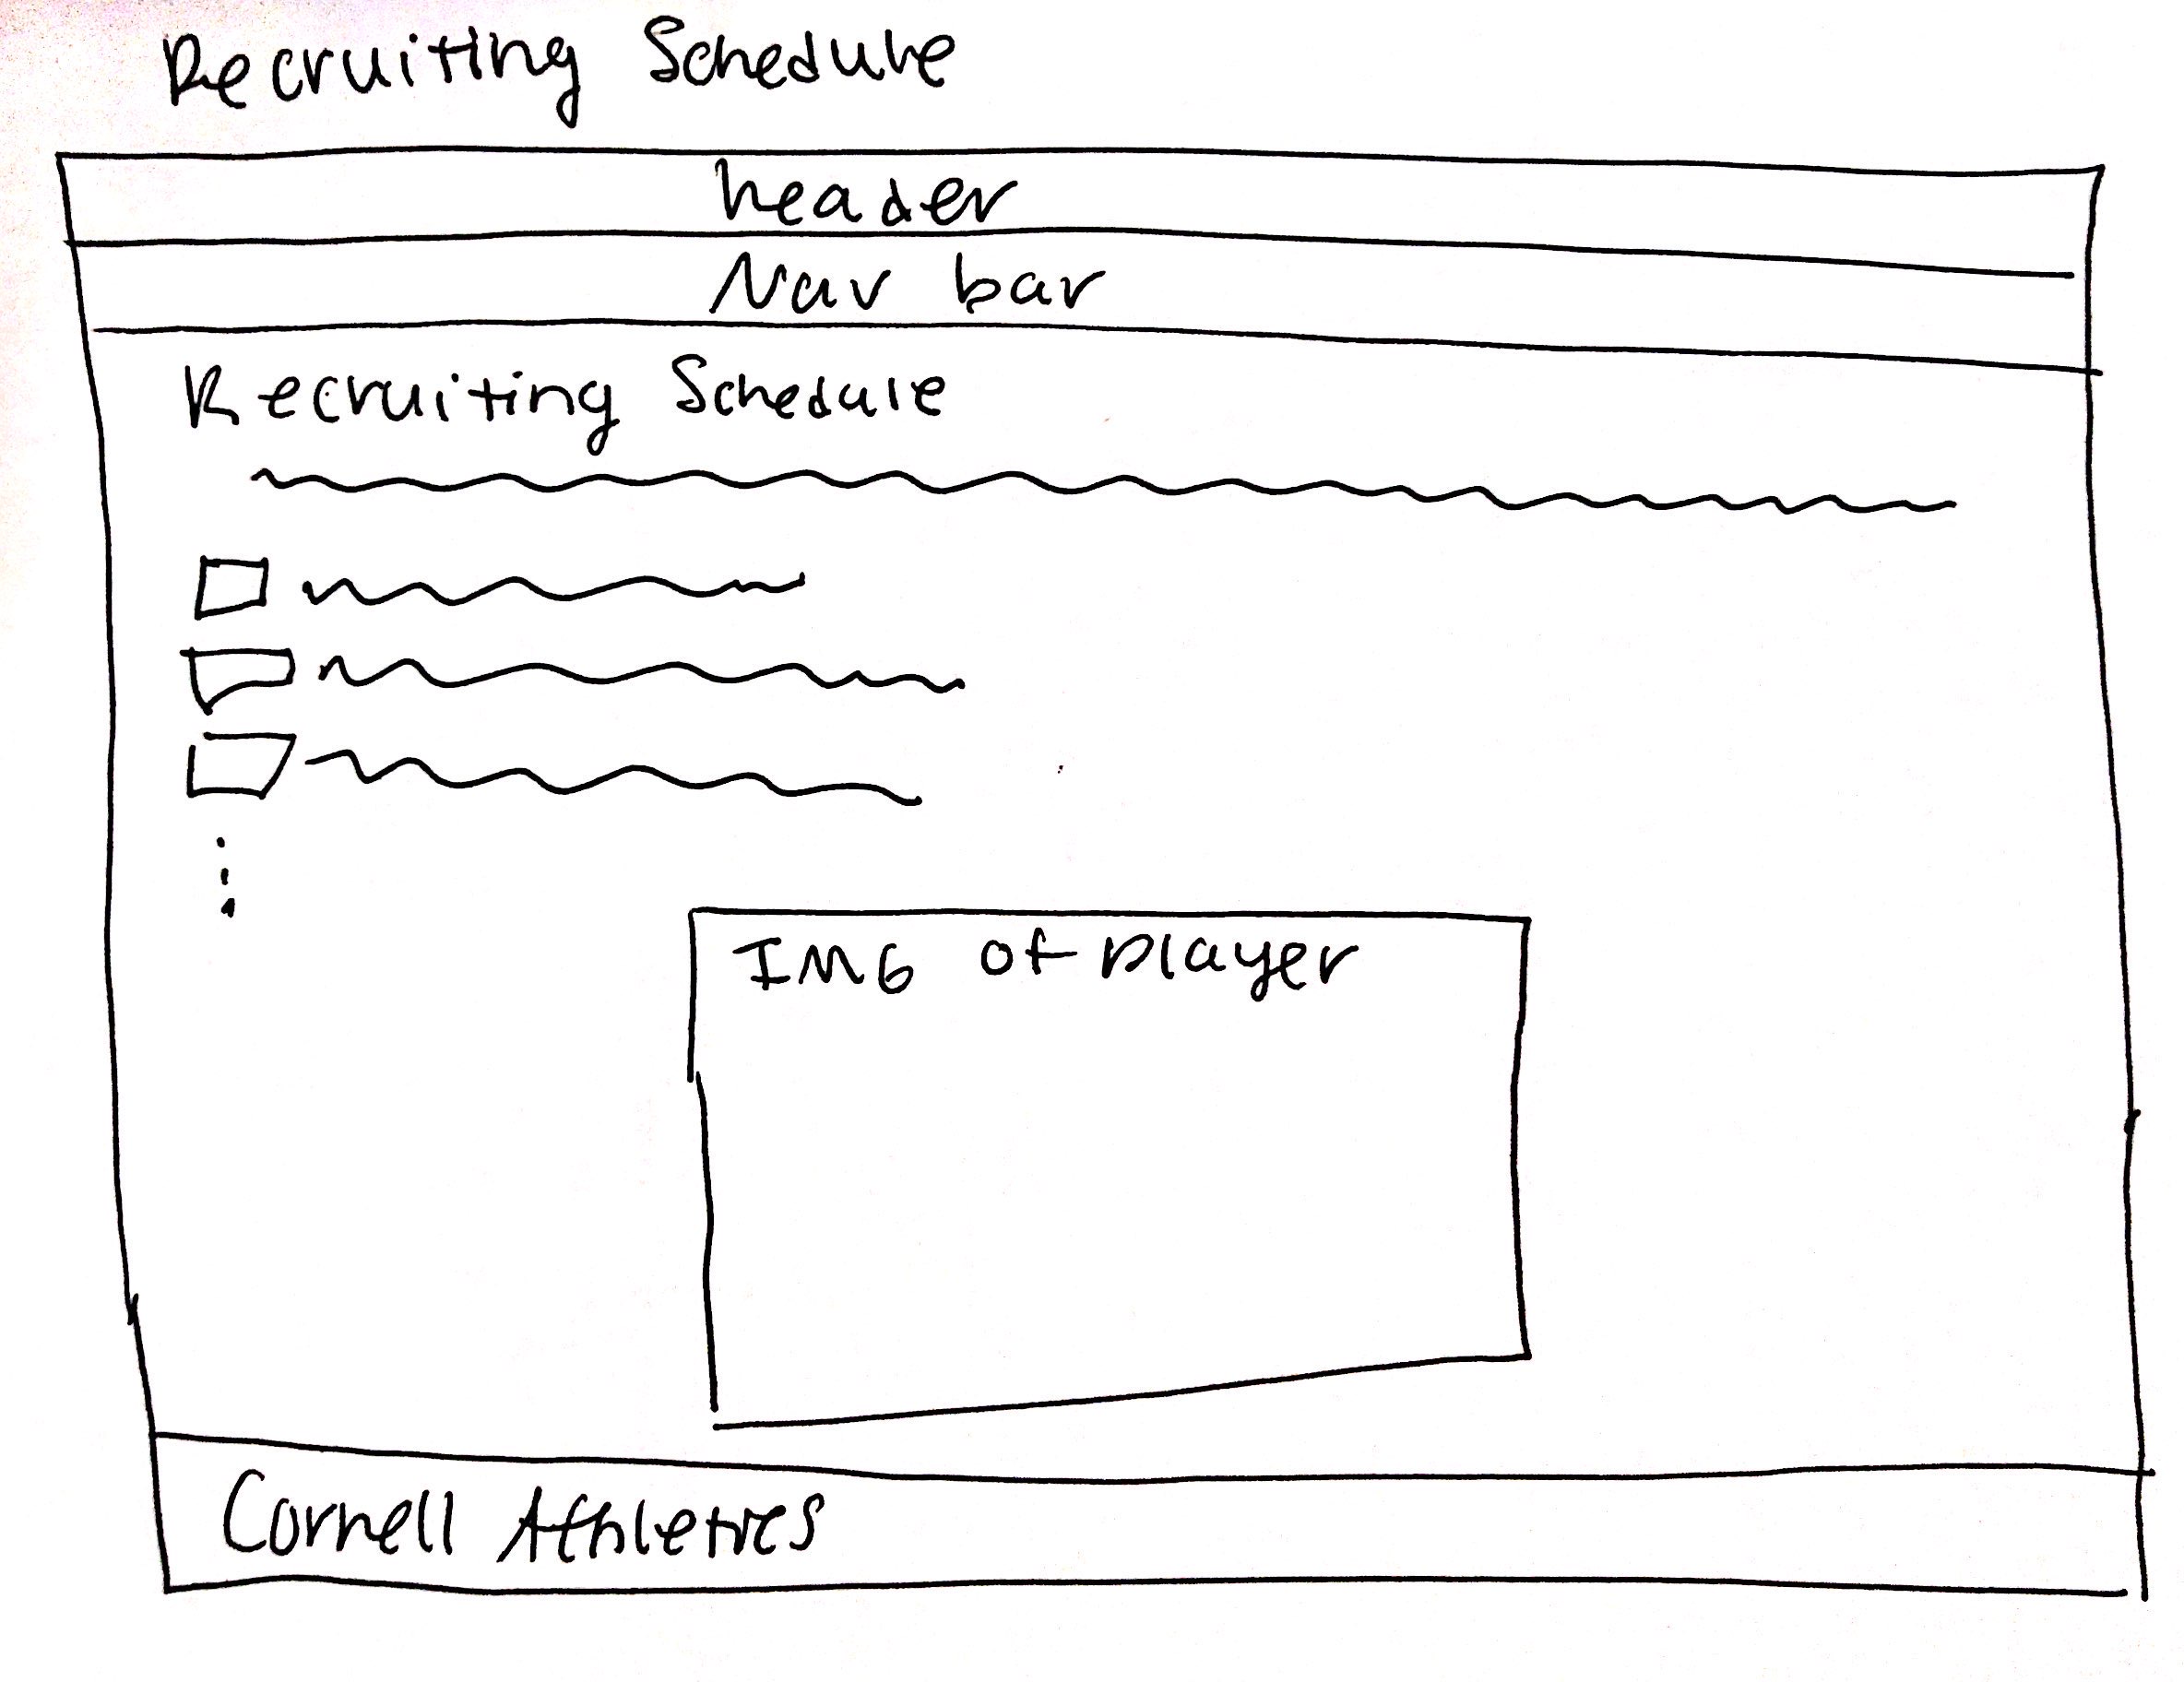 Recruiting Schedule
header
Nav bar
Recruiting Schedule
IMG of player
Cornell Athletics